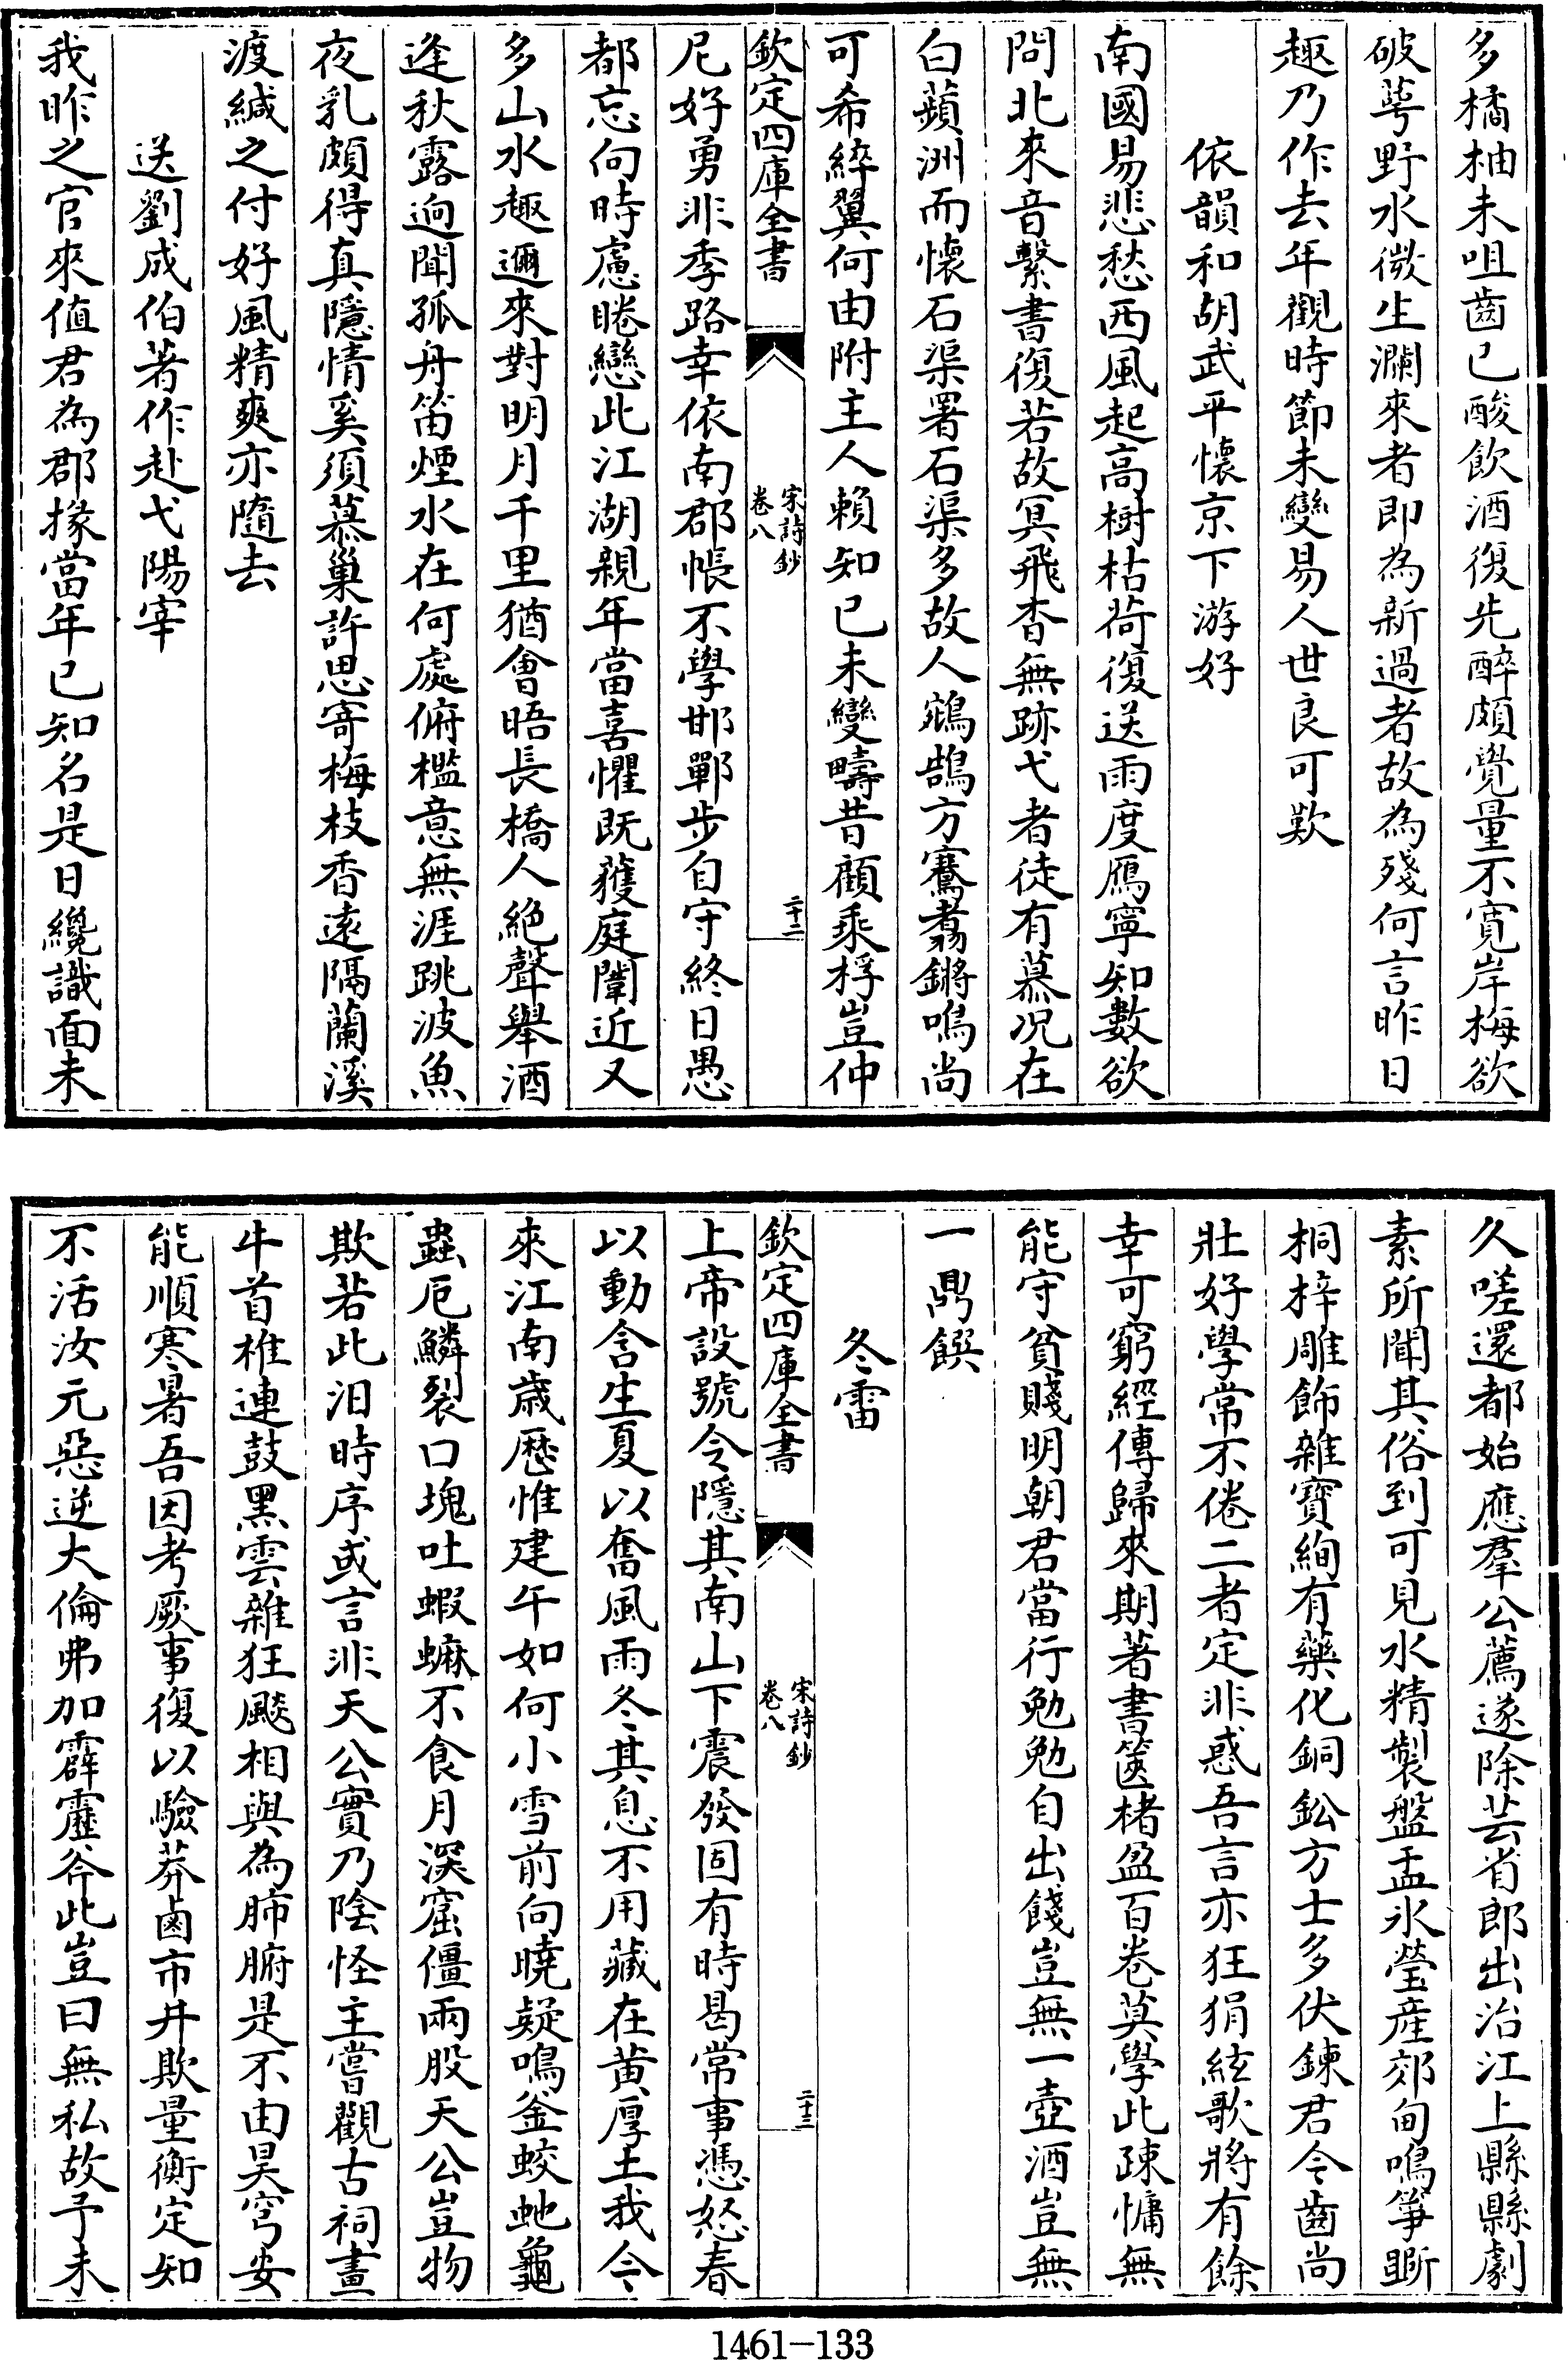 多橘柚未咀齒已酸飲酒復先醉頗覺量不寛岸梅欲
破萼野水微生瀾來者即為新過者故為殘何言昨日
趣乃作去年觀時節未變易人世良可歎
依韻和胡武平懷京下游好
南國易悲愁西風起高樹枯荷復送雨度鴈寧知數欲
問北來音繫書復若故冥飛杳無跡弋者徒有慕况在
白蘋洲而懷石渠署石渠多故人鵷鵠方騫翥鏘鳴尚
可希綷翼何由附主人賴知已未變疇昔顧乘桴豈仲
欽定四庫全書
宋詩鈔
卷八
二十二
尼好勇非季路幸依南郡帳不學邯鄲步自守終日愚
都忘向時慮睠戀此江湖親年當喜懼既獲庭闈近又
多山水趣邇來對明月千里猶會晤長橋人絕聲舉酒
逢秋露逈聞孤舟笛煙水在何處俯檻意無涯跳波魚
夜乳頗得真隱情奚須慕巢許思寄梅枝香遠隔蘭溪
渡緘之付好風精爽亦隨去
送劉成伯著作赴弋陽宰
我昨之官來值君為郡掾當年已知名是日纔識面未
久嗟還都始應羣公薦遂除芸省郎出治江上縣縣劇
素所聞其俗到可見水精製盤盂氷瑩産郊甸鳴箏斷
桐梓雕飾雜寳絢有藥化銅鈆方士多伏鍊君今齒尚
壯好學常不倦二者定非惑吾言亦狂狷絃歌將有餘
幸可窮經傳歸來期著書篋楮盈百卷莫學此踈慵無
能守貧賤明朝君當行勉勉自出餞豈無一壺酒豈無
一鼎饌
冬雷
欽定四庫全書
宋詩鈔
卷八
二十三
上帝設號令隱其南山下震發固有時曷常事憑怒春
以動含生夏以奮風雨冬其息不用藏在黄厚土我今
來江南歲厯惟建午如何小雪前向曉疑鳴釡蛟虵龜
蟲厄鱗裂口塊吐蝦蟆不食月深窟僵兩股天公豈物
欺若此汨時序或言非天公實乃陰怪主嘗觀古祠畫
牛首椎連鼓黑雲雜狂飈相與為肺腑是不由昊穹安
能順寒暑吾因考厥事復以驗莽鹵市井欺量衡定知
不活汝元惡逆大倫弗加霹靂斧此豈曰無私故予未
1461-133